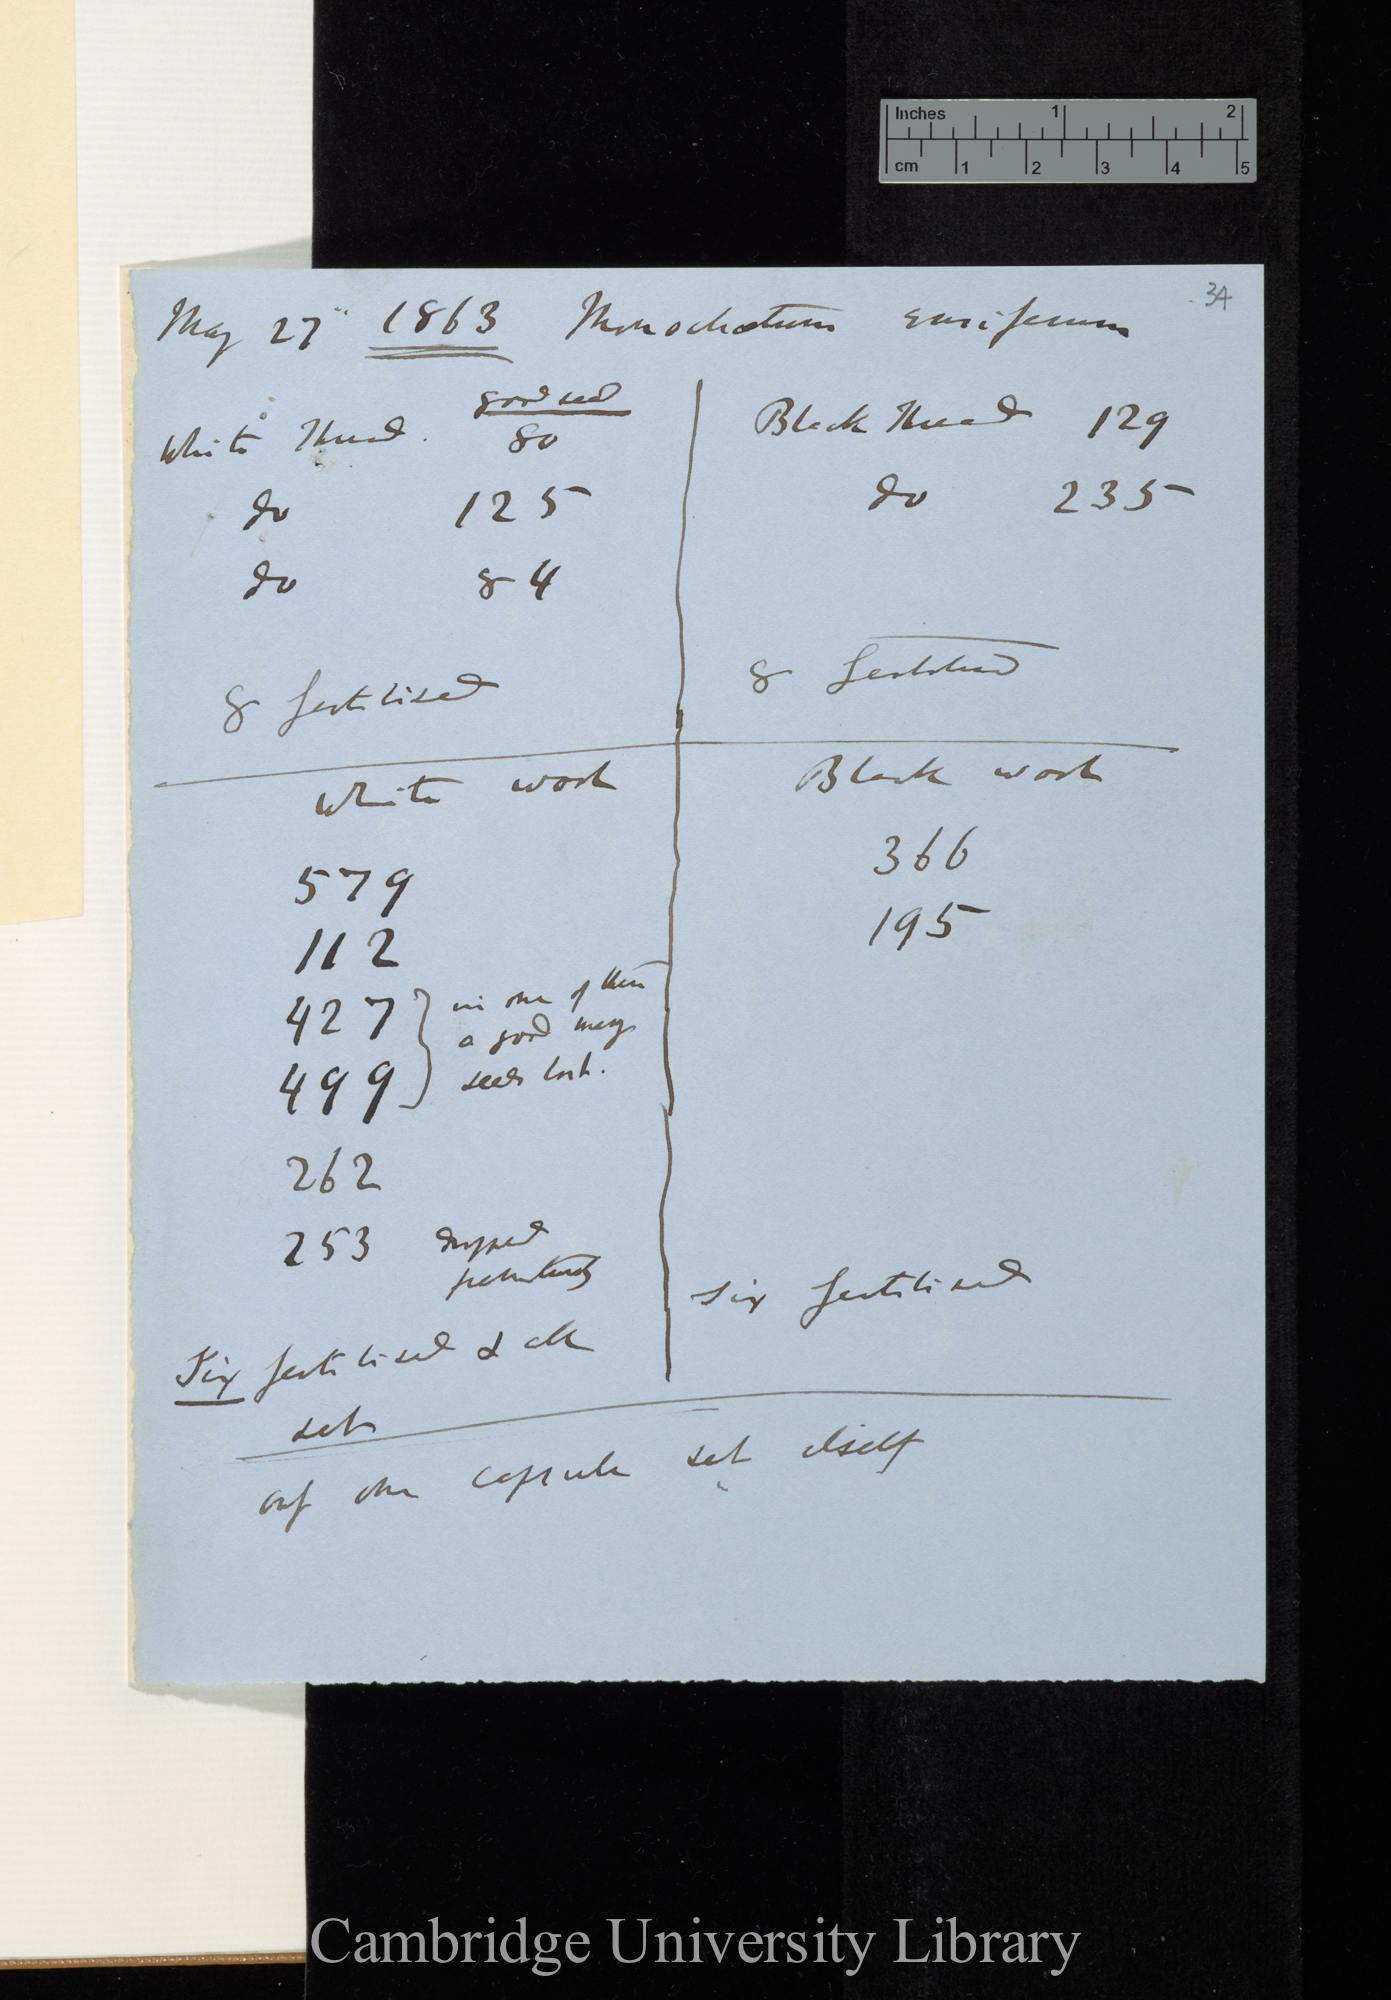 Inches 1 2
cm 1 2 3 4 5
34
May 27th 1863 Monochætum ensiferum
good seed
White thread. 80
do 125
do 84
8 fertilised
Black thread 129
do 235
8 fertilised
White wool
579
112
427 } in one of these
a good many
499 seeds lost.
262
253 dropped
prematurely
Six fertilised & all
set
Black wool
366
195
Six fertilised
only one capsule set itself
Cambridge University Library